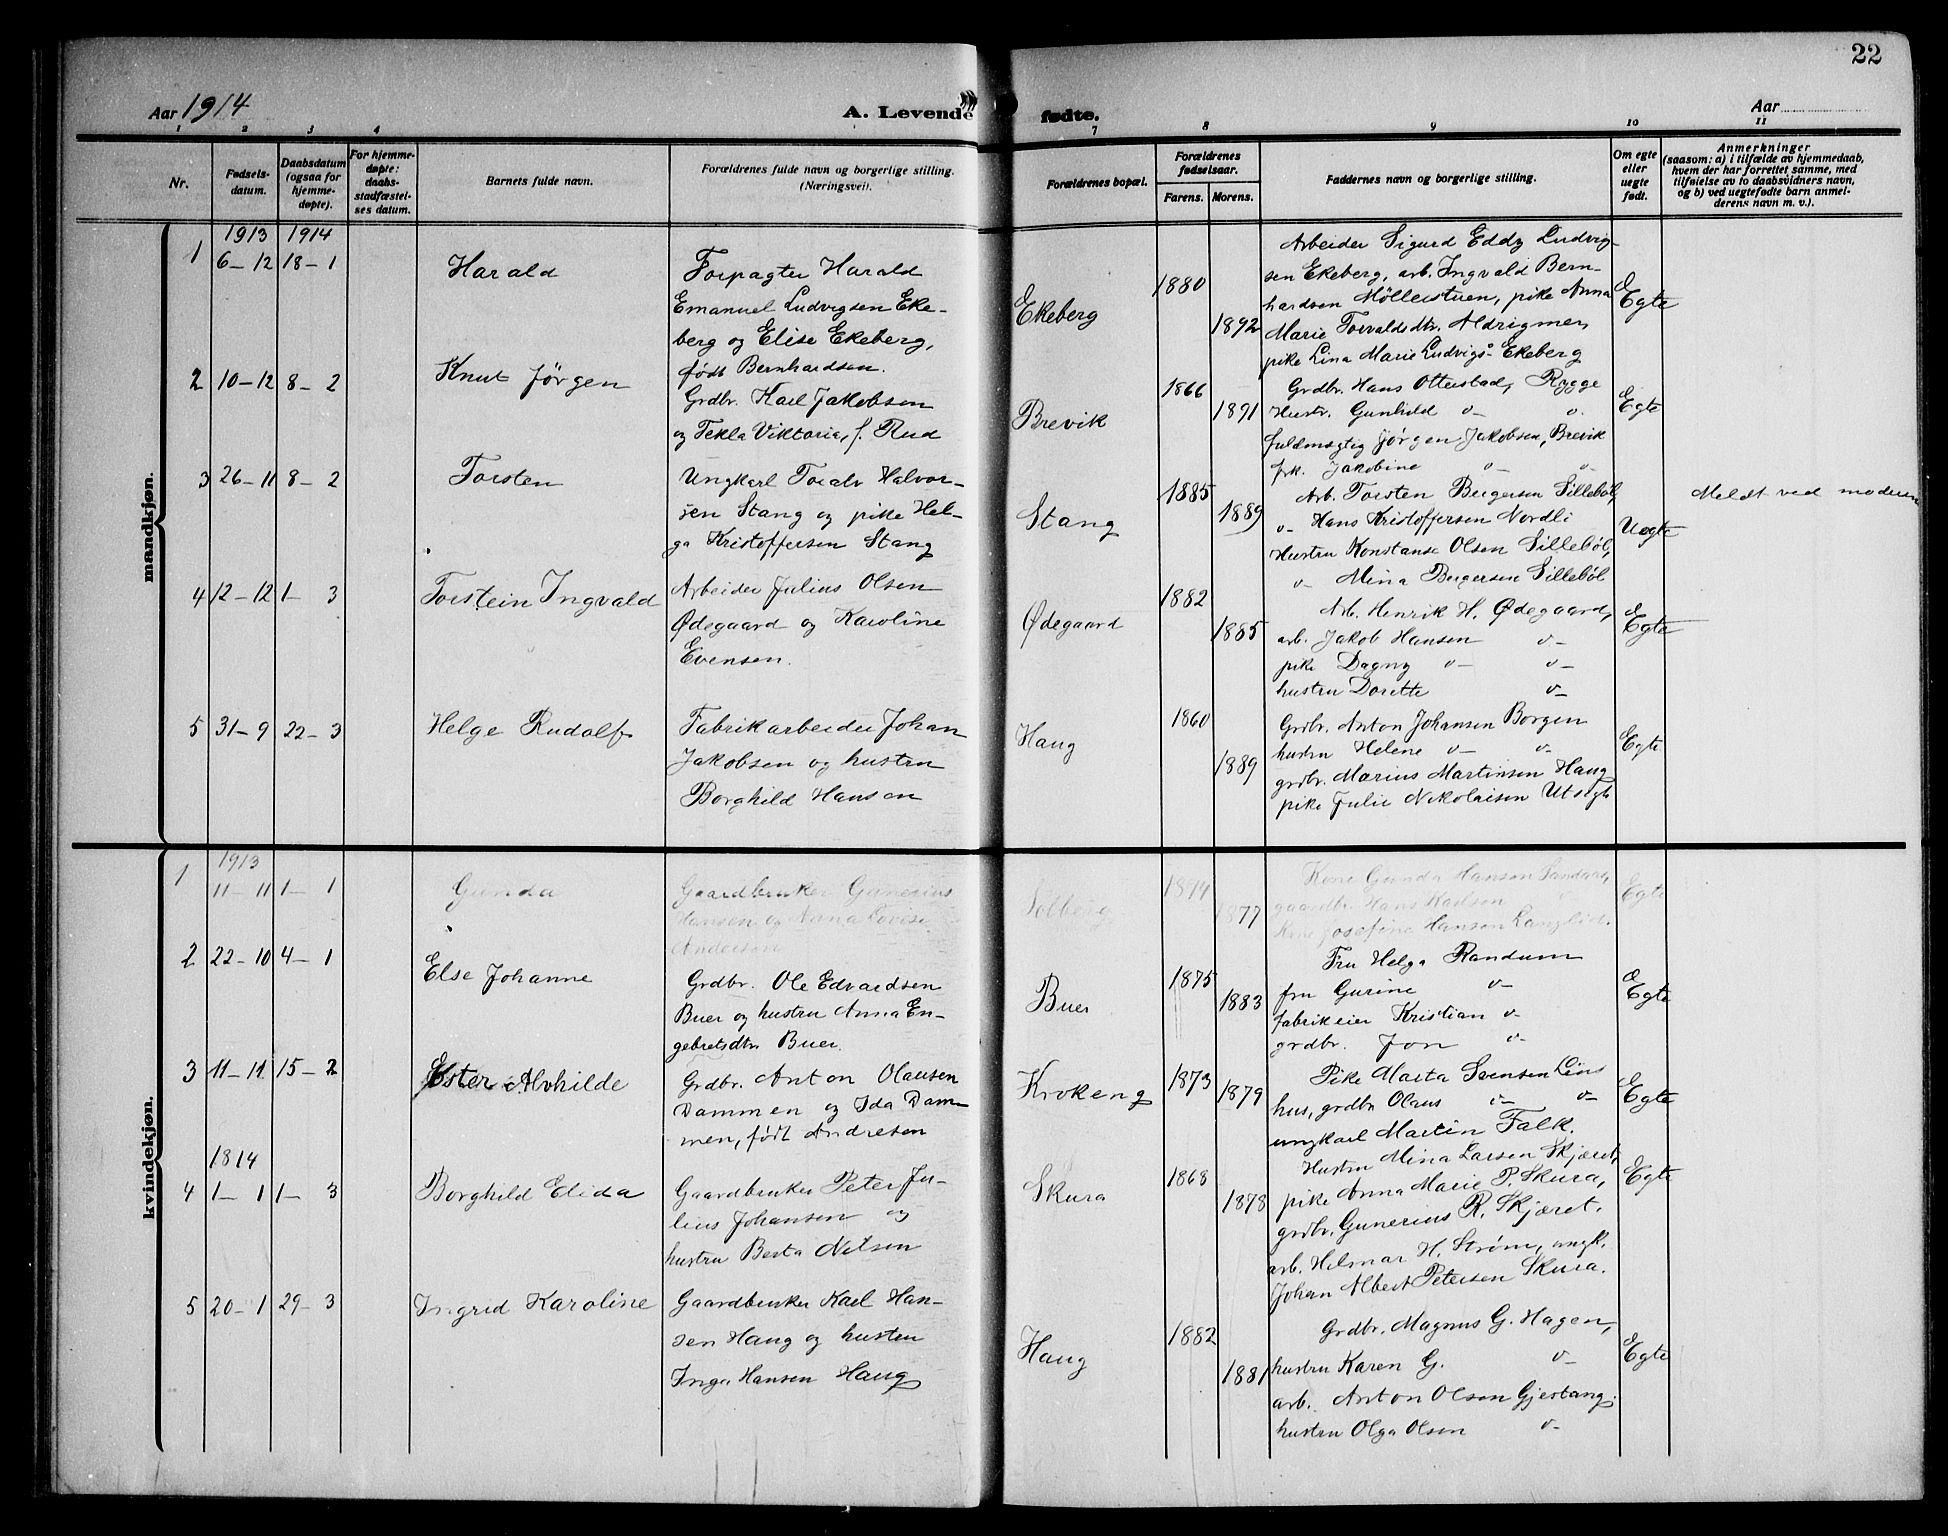 22
Aar 1914
A. Levende fødte.
Aar
1 2 3 4 7 8 9 10 11
Nr.
Fødsels-
datum.
Daabsdatum
(ogsaa for
hjemme-
døpte).
For hjemme-
døpte:
daabs-
stadfæstel-
ses datum.
Barnets fulde navn.
Forældrenes fulde navn og borgerlige stilling.
(Næringsvei).
Forældrenes bopæl.
Forældrenes
fødselsaar.
Farens. Morens.
Faddernes navn og borgerlige stilling.
Om egte
eller
uegte
født.
Anmerkninger
(saasom: a) i tilfælde av hjemmedaab,
hvem der har forrettet samme, med
tilføielse av to daabsvidners navn,
og b) ved uegtefødte barn anmel-
derens navn m. v.).
mandkjøn.
1913 1914
1 6-12 18-1 Harald
Forpagter Harald
Emanuel Ludvigsen Eke-
berg og Elise Ekeberg,
født Bernhardsen.
Ekeberg 1880 1892
Arbeider Sigurd Eddy Ludvig-
sen Ekeberg, arb. Ingvald Bern-
hardsen Möllerstuen, pike Anna
Marie Torvaldsdtr. Aldrigmer,
pike Lina Marie Ludvigs- Ekeberg
Egte
2 10-12 8-2 Knut Jörgen
Grdbr. Karl Jakobsen
og Tekla Viktoria, f. Rud
Brevik 1866 1891
Grdbr. Hans Otterstad, Rygge
Hustr. Gunhild v- v.
fuldmægtig Jörgen Jakobsen, Brevik
frk. Jakobine v- v-
Egte
3 26-11 8-2 Torsten
Ungkarl Toralv Halvor-
sen Stang og pike Hel-
ga Kristoffersen Stang
Stang 1885 1889
Arb. Torsten Bergersen Sillebøl,
v- Hans Kristoffersen Nordli
Hustru Konstanse Olsen Sillebøl,
v- Mina Bergersen Sillebøl
Uegte
Meldt ved moderen
4 12-12 1-3 Torstein Ingvald
Arbeider Julius Olsen
Ødegaard og Karoline
Evensen.
Ødegaard 1882 1885
Arb. Henrik H. Ødegaard,
arb. Jakob Hansen v-
pike Dagny v- v-
hustru Dorette v-
Egte
5 31-9 22-3 Helge Rudolf
Fabrikarbeider Johan
Jakobsen og hustru
Borghild Hansen
Haug 1860 1889
Grdbr. Anton Johansen Borgen
hustru Helene v- v-
grdbr. Marius Martinsen Haug
pike Julie Nikolaisen Utsigt
Egte
kvindekjøn.
1913
1 11-11 1-1 Gunda
Gaardbruker Gunerius
Hansen og Anna Lovise
Andersen
Solberg 1874 1877
Kone Gunda Hansen
gaardbr. Hans Karlsen v
Kone Josefine Hansen
Egte
2 22-10 4-1 Else Johanne
Grdbr. Ole Edvardsen
Buer og hustru Anna En-
gebretsdtr Buer.
Buer 1875 1883
Fru Helga Randum
fru Gurine v-
fabrikeier Kristian v-
grdbr. Jon v-
Egte
3 11-11 15-2 Ester Alvhilde
Grdbr. Anton Olausen
Dammen og Ida Dam-
men, født Andresen
Krokeng 1873 1879
Pike Marta Svensen Löns
hus, grdbr Olaus v- v-
ungkarl Martin Falk.
Egte
1814
4 1-1 1-3 Borghild Elida
Gaardbruker Peter Ju-
lius Johansen og
hustru Berta Nilsen
Skura 1868 1878
Hustru Mina Larsen Skjæret,
pike Anna Marie P. Skura,
grdbr. Gunerius R. Skjæret.
arb. Hilmar H. Strøm, ungk.
Johan Albert Petersen Skura.
Egte
5 20-1 29-3 Ingrid Karoline
Gaardbruker Karl Han-
sen Haug og hustru
Inga Hansen Haug
Haug 1882 1881
Grdbr. Magnus G. Hagen,
hustru Karen G. v-
arb. Anton Olsen Gjestang,
hustru Olga Olsen v-
Egte